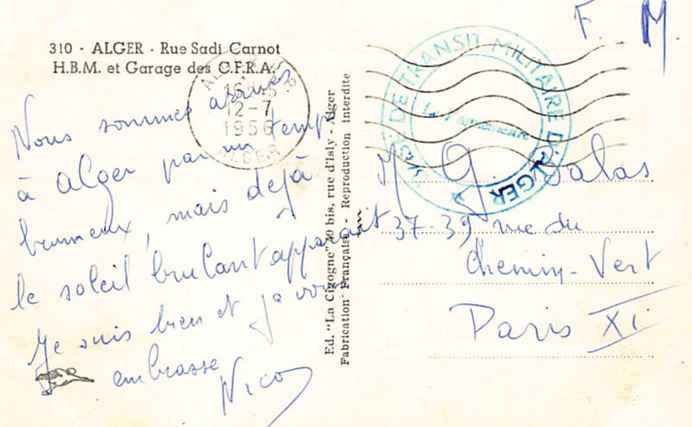 310 - ALGER - Rue Sadi Carnot
H.B.M. et Garage des C.F.R.A.
Nous sommes arrivés
à Alger par un temps
brumeux, mais déjà
le soleil brulant apparait
Je suis bien et je vous
embrasse
Nico
Ed. "La Cigogne" 30 bis, rue d'Isly - Alger
Fabrication Française - Reproduction Interdite
12-7
1956
ALGER
DE TRANSIT MILITAIRE D'ALGER
F. M.
M G. Salas
37-39 rue du
Chemin-Vert
Paris XI